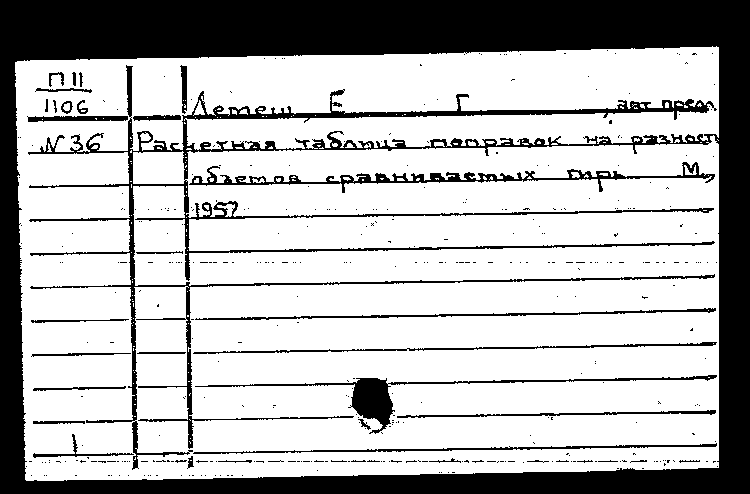 П11
1106
Летеш, Е Г , авт предл.
N 36 Расчетная таблица поправок на разность
объемов сравниваемых гирь М.,
1957
1